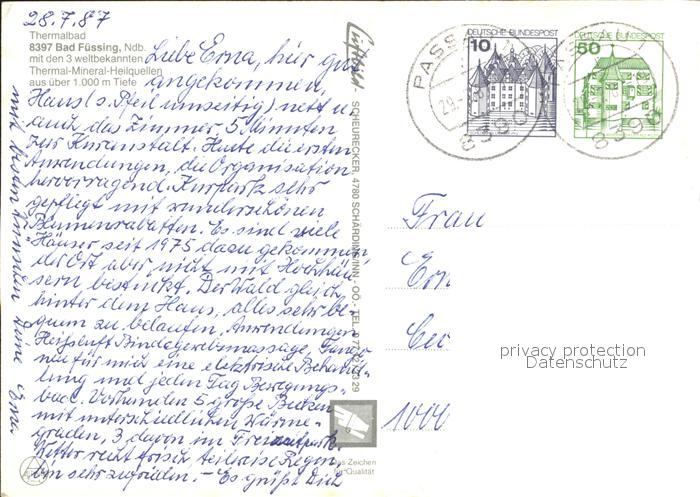 28.7.87
Thermalbad
8397 Bad Füssing, Ndb.
mit den 3 weltbekannten
Thermal-Mineral-Heilquellen
aus über 1.000 m Tiefe
Liebe Erna, hier gut
angekommen,
Haus (s. Pfeil umseitig) nett u.
auch das Zimmer. 5 Minuten
zur Kuranstalt. Heute die ersten
Anwendungen, die Organisation
hervorragend. Kurpark sehr
gepflegt mit wunderschönen
Blumenrabatten. Es sind viele
Häuser seit 1975 dazu gekommen
der Ort aber nicht mit Hochhäu
sern bestückt. Der Wald gleich
hinter dem Haus, alles sehr be-
quem zu belaufen. Anwendungen
Heissluft Bindegewebsmassage, Fango
nur für mich eine elektrische Behand-
lung und jeden Tag Bewegungs-
bad. Vorhanden 5 große Becken
mit unterschiedlichen Wärme-
graden, 3 davon im Freien
Wetter recht frisch, teilweise Regen
bin sehr zufrieden. - Es grüßt Dich
Luftbild SCHEURECKER, 4780 SCHÄRDING/INN - OÖ. - TEL.
Das Zeichen
für Qualität
DEUTSCHE BUNDESPOST
10
DEUTSCHE BUNDESPOST
50
PASS
8390
8390
Frau
Ern
1000
privacy protection
Datenschutz